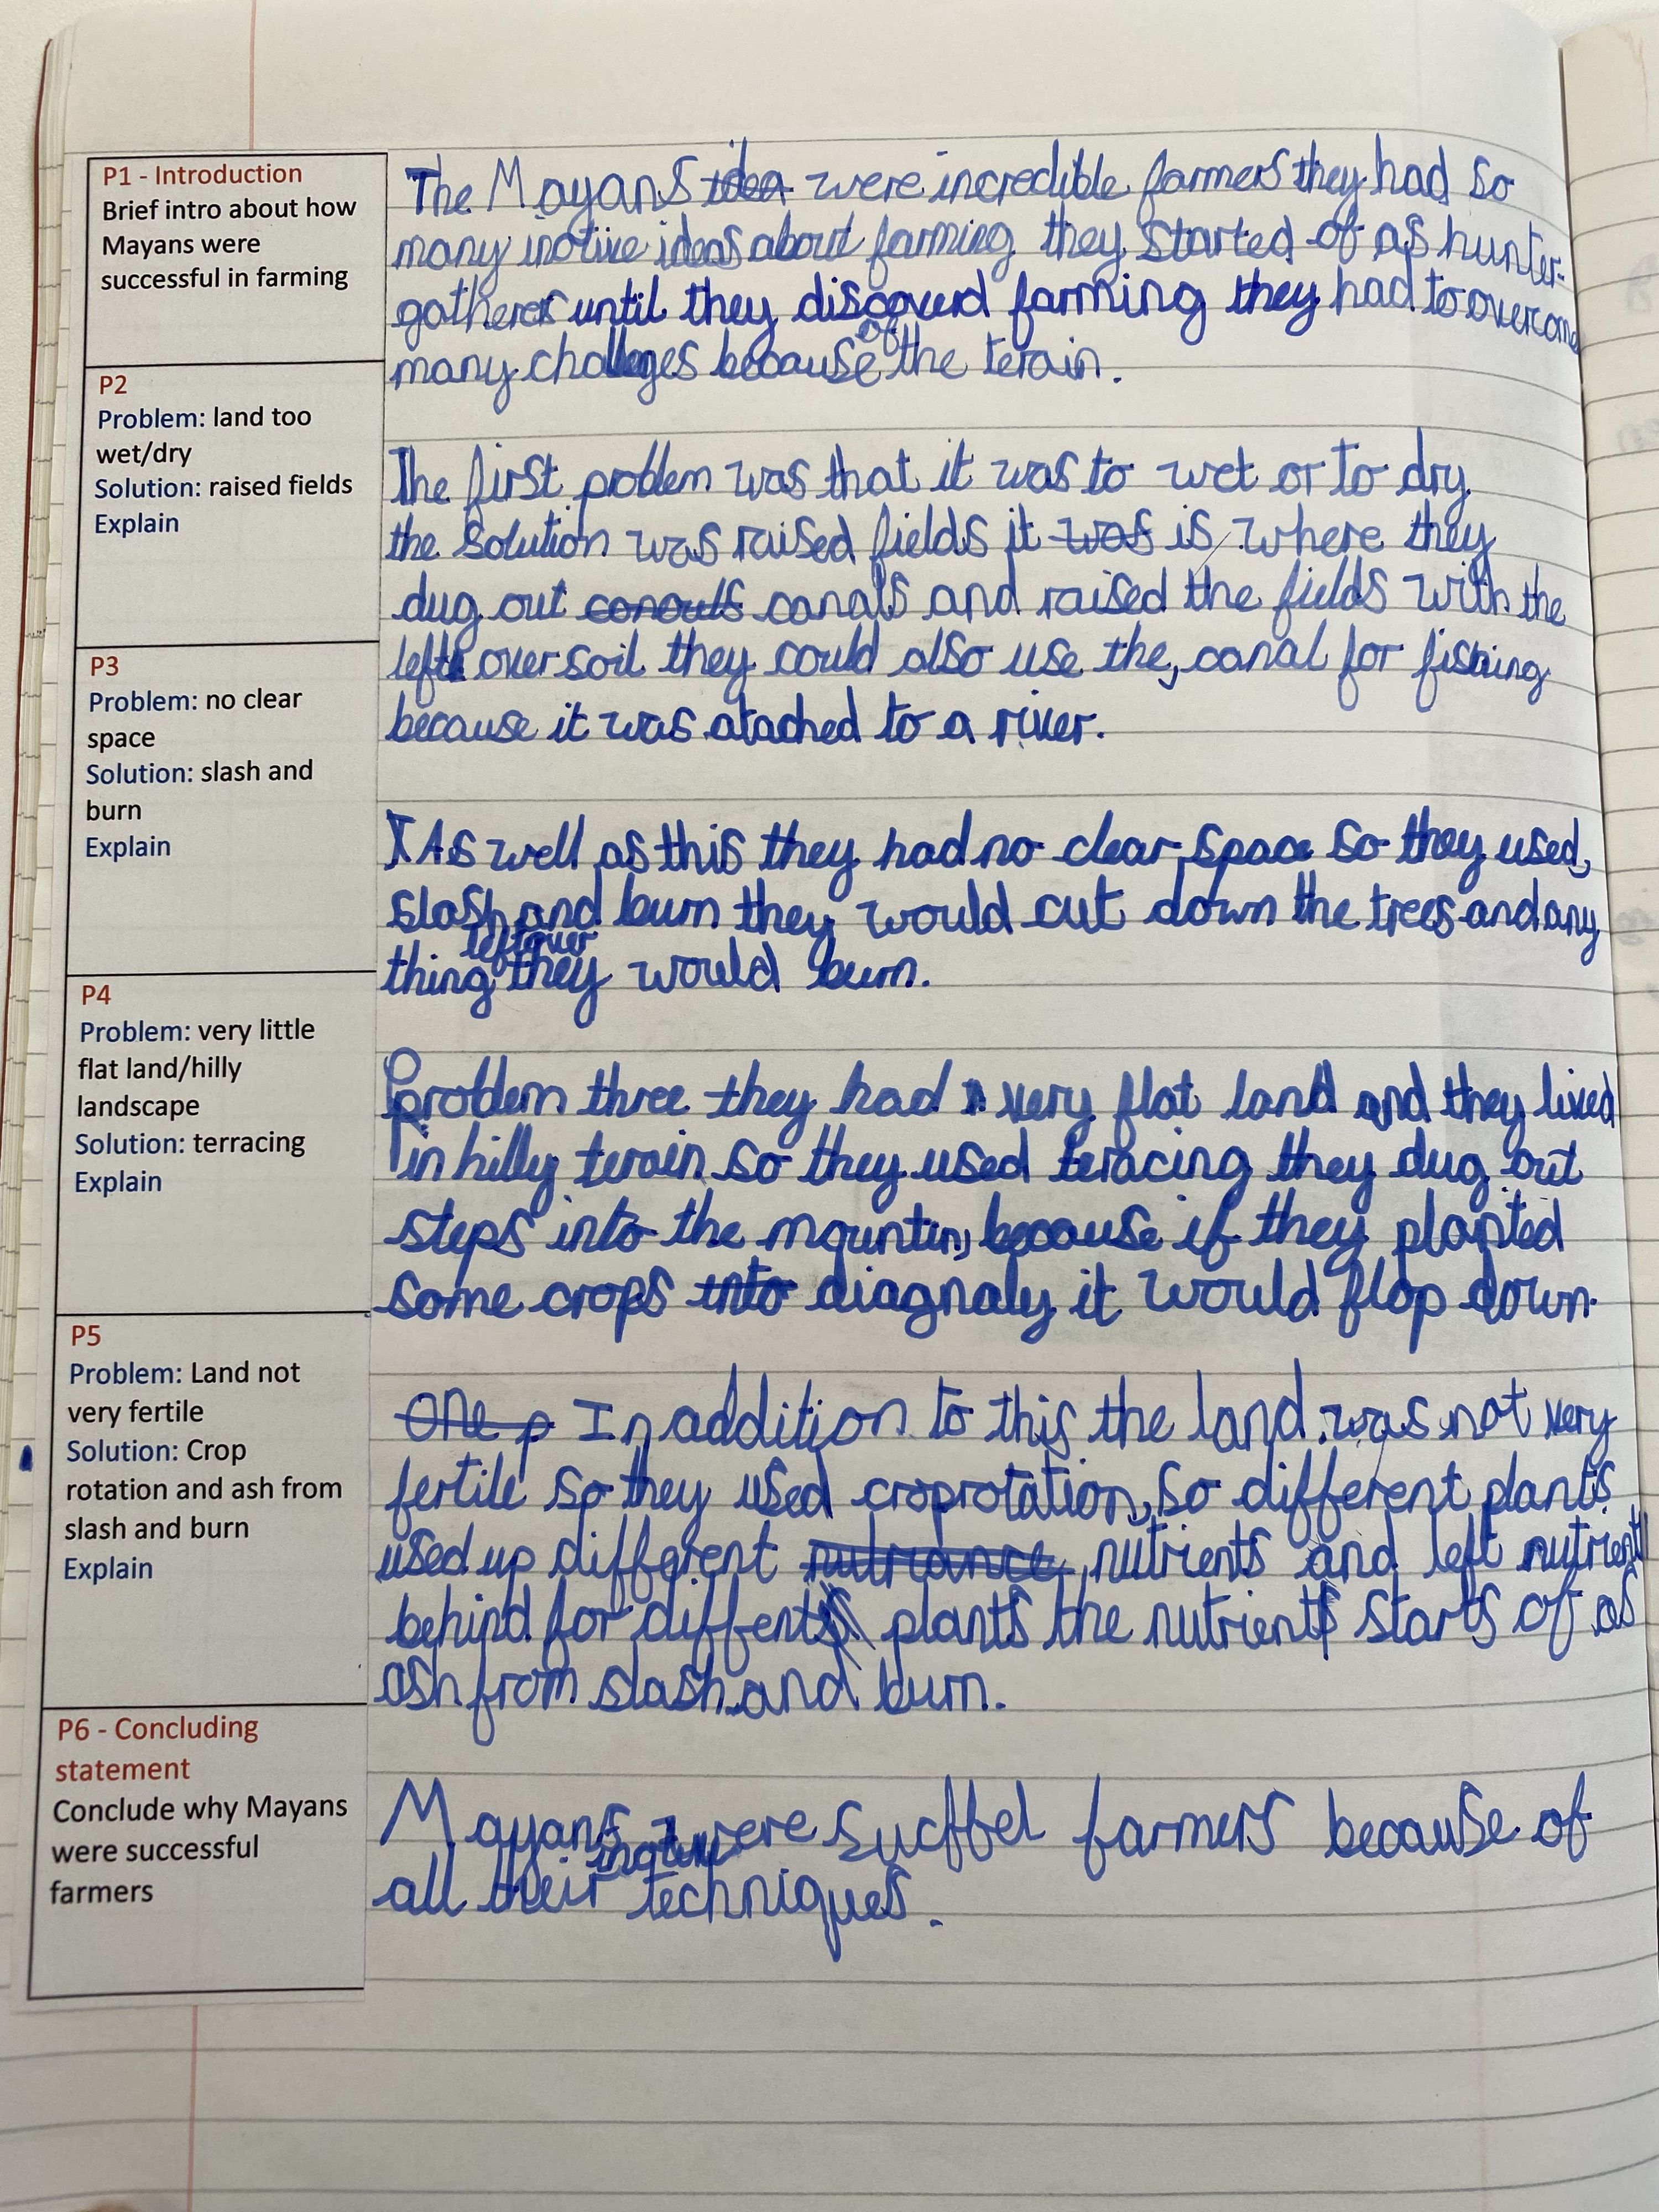 P1 - Introduction
Brief intro about how
Mayans were
successful in farming
P2
Problem: land too
wet/dry
Solution: raised fields
Explain
P3
Problem: no clear
space
Solution: slash and
burn
Explain
P4
Problem: very little
flat land/hilly
landscape
Solution: terracing
Explain
P5
Problem: Land not
very fertile
Solution: Crop
rotation and ash from
slash and burn
Explain
P6 - Concluding
statement
Conclude why Mayans
were successful
farmers
The Mayans idea were incredible farmers they had so
many inotive ideas about farming they started of as hunter-
gatherers until they discoverd farming they had to overcome
many challenges because of the terain.
The first problem was that it was to wet or to dry
the solution was raised fields it was is where they
dug out canouls canals and raised the fields with the
left over soil they could also use the, canal for fishing
because it was atached to a river.
As well as this they had no clear space so they used,
slash and burn they would cut down the trees and any
thing leftover they would burn.
Problem three they had very flat land and they lived
in hilly terain so they used teracing they dug out
steps into the mountin, because if they planted
some crops into diagnaly it would flop down.
One p In addition to this the land was not very
fertile so they used croprotation, so different plants
used up different nutriance nutrients and left nutrient
behind for diffent plants the nutrients starts of as
ash from slash and burn.
Mayans were sucffel farmers because of
all their inotive techniques.